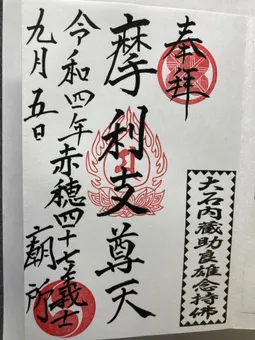 奉拝
大石内蔵助良雄念持佛
摩利支尊天
令和四年赤穂四十七義士
廟所
九月五日